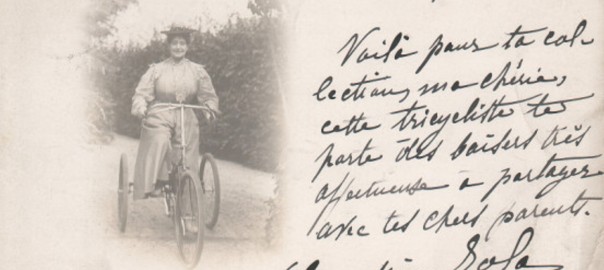 Voilà pour ta col-
lection, ma chérie,
cette tricycliste te
porte des baisers très
affectueuse à partager
avec tes chers parents.